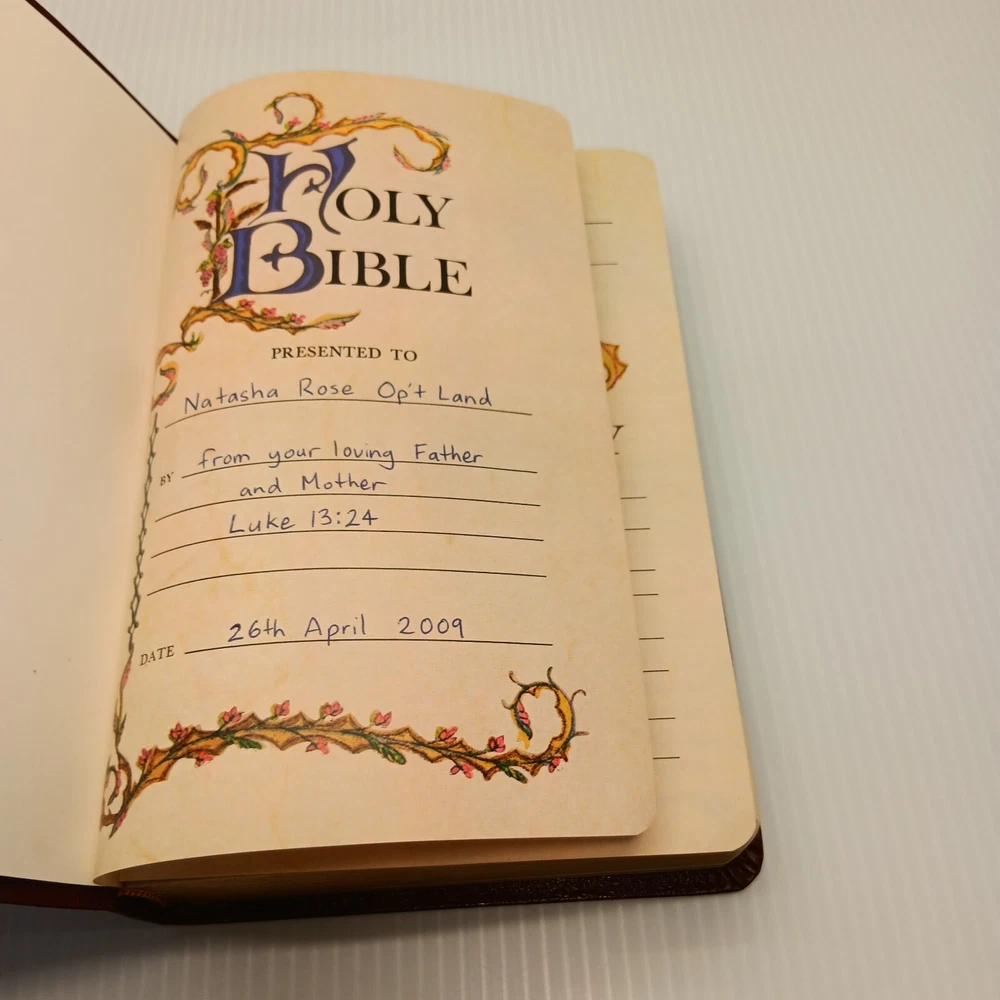 HOLY
BIBLE
PRESENTED TO
Natasha Rose Op't Land
BY from your loving Father
and Mother
Luke 13:24
DATE 26th April 2009
Y